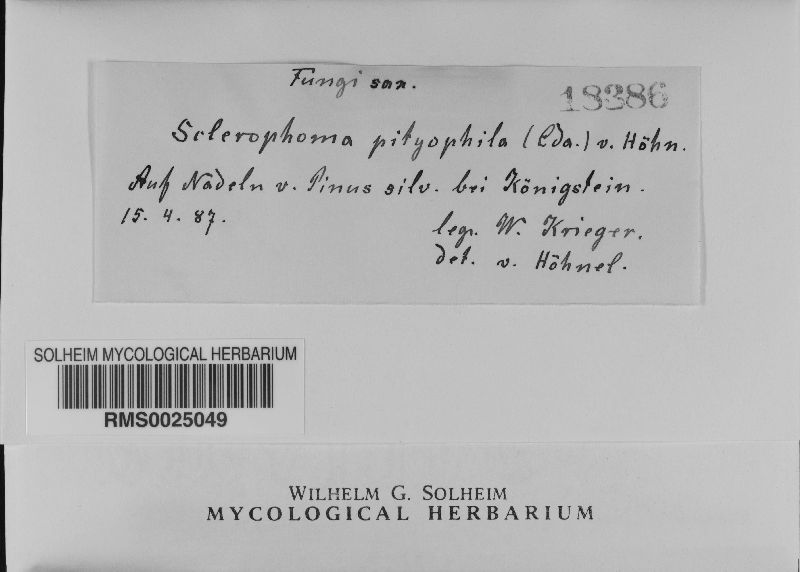 Fungi sax.
18386
Sclerophoma pityophila (Cda.) v. Höhn.
Auf Nadeln v. Pinus silv. bei Königstein.
15. 4. 87.
leg. W. Krieger.
det. v. Höhnel.
SOLHEIM MYCOLOGICAL HERBARIUM
RMS0025049
WILHELM G. SOLHEIM
MYCOLOGICAL HERBARIUM